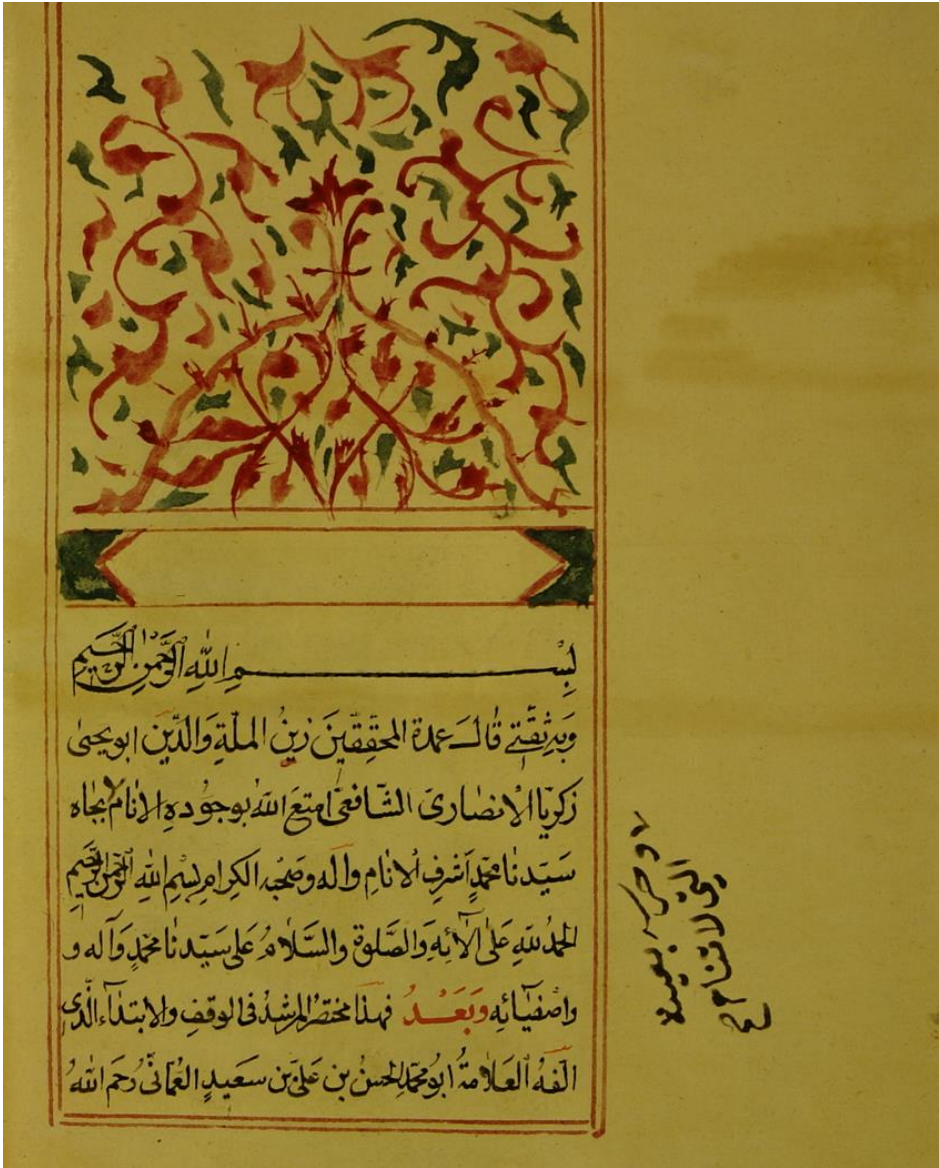 بِسْمِ اللّٰهِ الرَّحْمٰنِ الرَّحِيمِ
وَبِهِ ثِقَتِي قَالَ عمدة المحقّقِينَ زينُ الملّةِ وَالدِّين ابو يحيى
زكريّا الْانصَارىّ الشّافعىّ امتعَ اللّٰهُ بوجُودِهِ الانامَ بجَاه
سَيّدنَا محمّدٍ اَشرفِ الانامِ واٰله وصَحبِه الكِرامِ بِسْمِ اللهِ الرّحمٰنِ الرّحِيمِ
الحمدُ للّٰهِ عَلٰى اٰلآئِهِ وَالصَّلوة والسَّلامُ على سَيّدنَا محمّدٍ وَآله و
واصْفيَآئِه وَبَعْدُ فهذَا مختصرُ المرشدْ فى الوقفِ والابتدَآء الَّذِى
الّفهُ العَلاّمةُ ابو محمّدٍ الحسنُ بن عَلىّ بن سَعيدٍ العُمانىّ رَحمَ اللّٰهُ
بعيد
التى لا